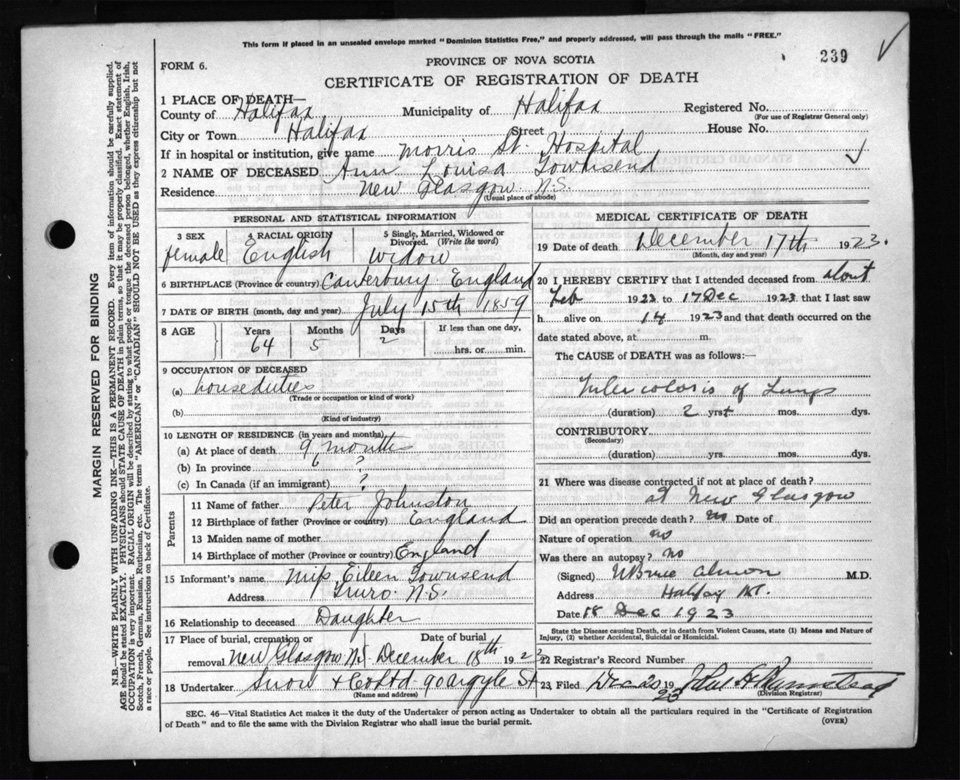 This form if placed in an unsealed envelope marked "Dominion Statistics Free," and properly addressed, will pass through the mails "FREE."
239
FORM 6.
PROVINCE OF NOVA SCOTIA
CERTIFICATE OF REGISTRATION OF DEATH
1 PLACE OF DEATH—
County of Halifax Municipality of Halifax Registered No.
(For use of Registrar General only)
City or Town Halifax Street House No.
If in hospital or institution, give name Morris St. Hospital
2 NAME OF DECEASED Ann Louisa Townsend
Residence New Glasgow N.S.
(Usual place of abode)
PERSONAL AND STATISTICAL INFORMATION
3 SEX 4 RACIAL ORIGIN 5 Single, Married, Widowed or Divorced. (Write the word)
female English Widow
6 BIRTHPLACE (Province or country) Canterbury England
7 DATE OF BIRTH (month, day and year) July 15th 1859
8 AGE Years Months Days If less than one day,
64 5 2 hrs. or min.
9 OCCUPATION OF DECEASED
(a) house duties
(Trade or occupation or kind of work)
(b)
(Kind of industry)
10 LENGTH OF RESIDENCE (in years and months)
(a) At place of death 9 months
(b) In province 6 ?
(c) In Canada (if an immigrant) ?
Parents
11 Name of father Peter Johnston
12 Birthplace of father (Province or country) England
13 Maiden name of mother
14 Birthplace of mother (Province or country) England
15 Informant's name Miss Eileen Townsend
Address Truro N.S.
16 Relationship to deceased Daughter
17 Place of burial, cremation or removal Date of burial
New Glasgow N.S. December 18th 1923
18 Undertaker Snow & Co Ltd 90 Argyle St
(Name and address)
MEDICAL CERTIFICATE OF DEATH
19 Date of death December 17th 1923.
(Month, day and year)
20 I HEREBY CERTIFY that I attended deceased from about
Feb 1923 to 17 Dec 1923 that I last saw
h alive on 14 1923 and that death occurred on the
date stated above, at m.
The CAUSE of DEATH was as follows:—
Tuberculosis of Lungs
(duration) 2 yrs. mos. dys.
CONTRIBUTORY
(Secondary)
(duration) yrs. mos. dys.
21 Where was disease contracted if not at place of death?
at New Glasgow
Did an operation precede death? No Date of
Nature of operation no
Was there an autopsy? no
(Signed) W Bruce Almon M.D.
Address Halifax
Date 18 Dec 1923
State the Disease causing Death, or in death from Violent Causes, state (1) Means and Nature of
Injury, (2) whether Accidental, Suicidal or Homicidal.
22 Registrar's Record Number
23 Filed Dec 20 1923
(Division Registrar)
SEC. 46—Vital Statistics Act makes it the duty of the Undertaker or person acting as Undertaker to obtain all the particulars required in the "Certificate of Registration
of Death" and to file the same with the Division Registrar who shall issue the burial permit.
(OVER)
MARGIN RESERVED FOR BINDING
N.B.—WRITE PLAINLY WITH UNFADING INK—THIS IS A PERMANENT RECORD. Every item of information should be carefully supplied.
AGE should be stated EXACTLY. PHYSICIANS should STATE CAUSE OF DEATH in plain terms, so that it may be properly classified. Exact statement of
OCCUPATION is very important. RACIAL ORIGIN will be described by stating to what people or tongue the deceased person belonged, whether English, Irish,
Scotch, French, German, Russian, Ruthenian, etc. The terms "AMERICAN" or "CANADIAN" SHOULD NOT BE USED as they express citizenship but not
a race or people. See instructions on back of Certificate.